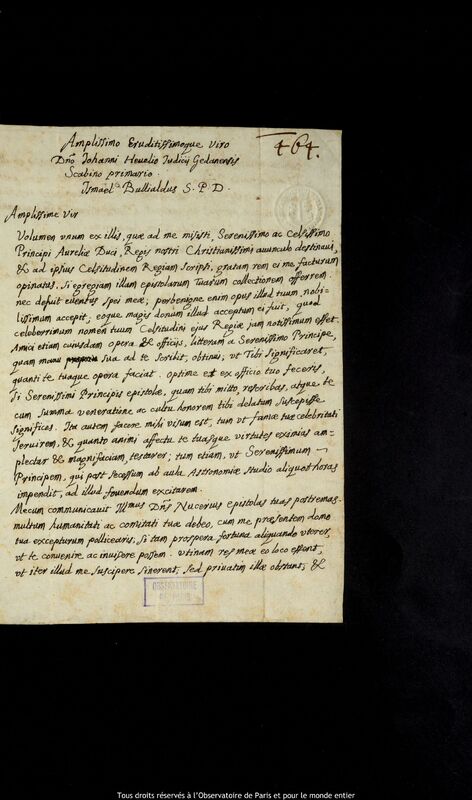 464.
Amplissimo Eruditissimoque Viro
Dño Johanni Hevelio Iudicij Gedanensis
Scabino primario.
Ismaël Bullialdus S. P. D.
Amplissime Vir
Volumen vnum ex illis, quæ ad me misisti, Serenissimo ac Celsissimo
Principi Aureliæ Duci, Regis nostri Christianissimi avunculo destinavi,
& ad ipsius Celsitudinem Regiam scripsi, gratam rem ei me facturum
opinatus, si egregiam illam epistolarum tuarum collectionem offerrem.
nec defuit eventus spei meæ; perbenigne enim opus illud tuum nobi-
lissimum accepit; eoque magis donum illud acceptum ei fuit, quod
celeberrimum nomen tuum Celsitudini ejus Regiæ jam notissimum esset.
Amici etiam cuiusdam opera & officijs, litteram a Serenissimo Principe,
quam manu sua ad te scribit, obtinui, vt Tibi significaret,
quanti te tuaque opera faciat. optime et ex officio tuo feceris,
si Serenissimi Principis epistolæ, quam tibi mitto, rescribas, atque te
cum summa veneratione ac cultu honorem tibi delatum suscepisse
significes. Ita autem facere mihi visum est, tum vt famæ tuæ celebritati
servirem, & quanto animi affectu te tuasque virtutes eximias am-
plectar & magnifaciam testarer; tum etiam, vt Serenissimum
Principem, qui post secessum ab aula Astronomiæ studio aliquot horas
impendit, ad illud fovendum excitarem.
Mecum communicavit Illmus Dñs Nucerius epistolas tuas postremas.
multum humanitati ac comitati tuæ debeo, cum me præsentem domo
tua excepturum pollicearis, si tam prospera fortuna aliquando vterer,
vt te convenire ac invisere possem. vtinam res meæ eo loco essent,
vt iter illud me suscipere sinerent, sed privatim illæ obstant, &
OBSERVATOIRE
Tous droits réservés à l'Observatoire de Paris et pour le monde entier